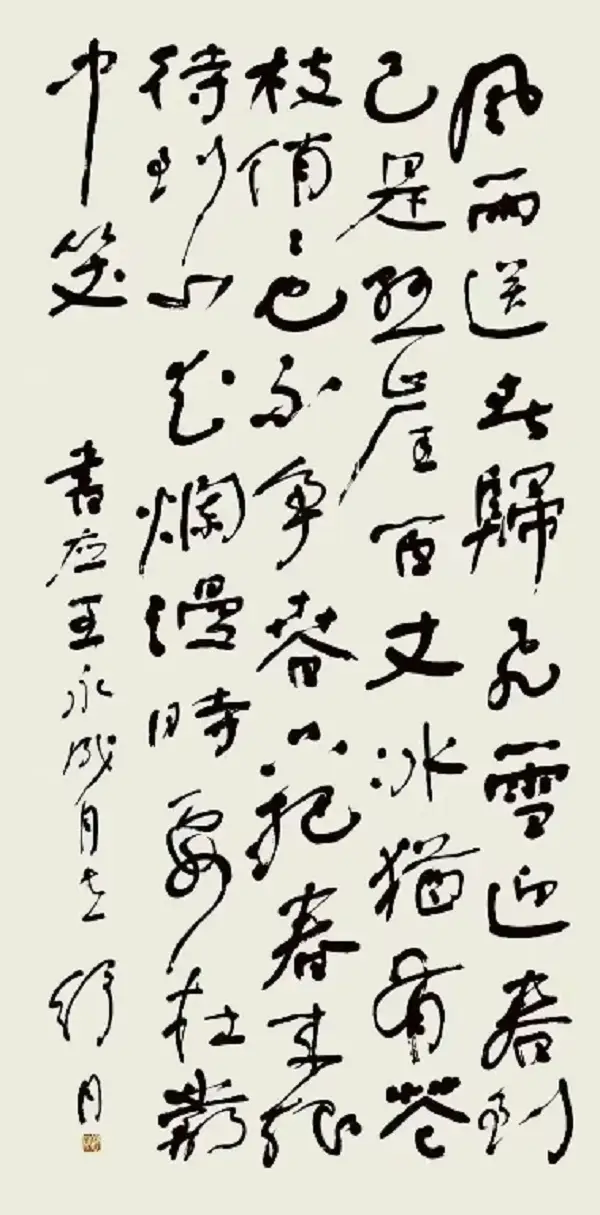 風雨送春歸飛雪迎春到
已是懸崖百丈冰猶有花
枝俏〻也不争春只把春来報
待到山花爛漫時在叢
中笑
書应王永成